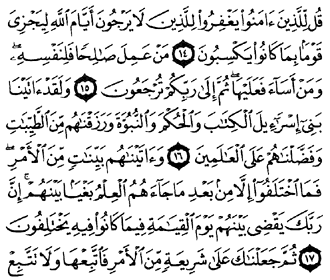 قُل لِّلَّذِينَ ءَامَنُوا۟ يَغْفِرُوا۟ لِلَّذِينَ لَا يَرْجُونَ أَيَّامَ ٱللَّهِ لِيَجْزِىَ
قَوْمًۢا بِمَا كَانُوا۟ يَكْسِبُونَ ١٤ مَنْ عَمِلَ صَـٰلِحًا فَلِنَفْسِهِۦ ۖ
وَمَنْ أَسَآءَ فَعَلَيْهَا ۖ ثُمَّ إِلَىٰ رَبِّكُمْ تُرْجَعُونَ ١٥ وَلَقَدْ ءَاتَيْنَا
بَنِىٓ إِسْرَٰٓءِيلَ ٱلْكِتَـٰبَ وَٱلْحُكْمَ وَٱلنُّبُوَّةَ وَرَزَقْنَـٰهُم مِّنَ ٱلطَّيِّبَـٰتِ
وَفَضَّلْنَـٰهُمْ عَلَى ٱلْعَـٰلَمِينَ ١٦ وَءَاتَيْنَـٰهُم بَيِّنَـٰتٍ مِّنَ ٱلْأَمْرِ ۖ
فَمَا ٱخْتَلَفُوٓا۟ إِلَّا مِنۢ بَعْدِ مَا جَآءَهُمُ ٱلْعِلْمُ بَغْيًۢا بَيْنَهُمْ ۚ إِنَّ
رَبَّكَ يَقْضِى بَيْنَهُمْ يَوْمَ ٱلْقِيَـٰمَةِ فِيمَا كَانُوا۟ فِيهِ يَخْتَلِفُونَ
١٧ ثُمَّ جَعَلْنَـٰكَ عَلَىٰ شَرِيعَةٍ مِّنَ ٱلْأَمْرِ فَٱتَّبِعْهَا وَلَا تَتَّبِعْ